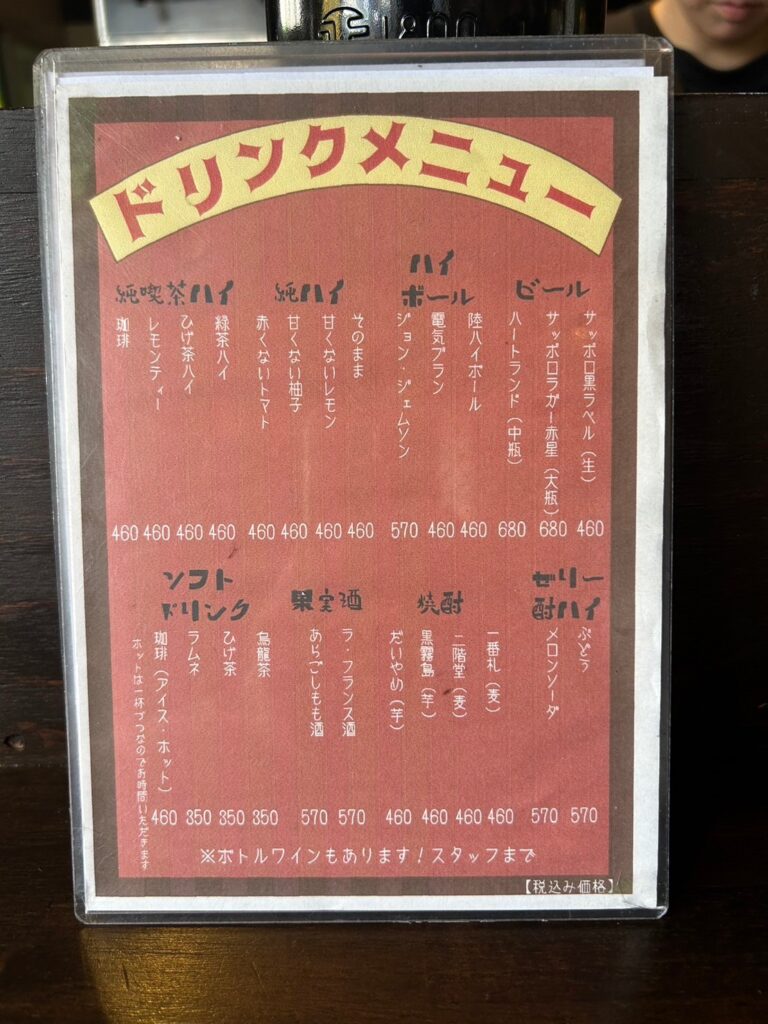 ドリンクメニュー
ビール
サッポロ黒ラベル(生) 460
サッポロラガー赤星(大瓶) 680
ハートランド(中瓶) 680
ハイ
ボール
陸ハイボール 460
電気ブラン 460
ジョン・ジェムソン 570
純ハイ
そのまま 460
甘くないレモン 460
甘くない柚子 460
赤くないトマト 460
純喫茶ハイ
緑茶ハイ 460
ひげ茶ハイ 460
レモンティー 460
珈琲 460
ゼリー
酎ハイ
ぶどう 570
メロンソーダ 570
焼酎
一番札(麦) 460
二階堂(麦) 460
黒霧島(芋) 460
だいやめ(芋) 460
果実酒
ラ・フランス酒 570
あらごしもも酒 570
ソフト
ドリンク
烏龍茶 350
ひげ茶 350
ラムネ 350
珈琲(アイス・ホット) 460
ホットは一杯づつなのでお時間いただきます
※ボトルワインもあります!スタッフまで
【税込み価格】